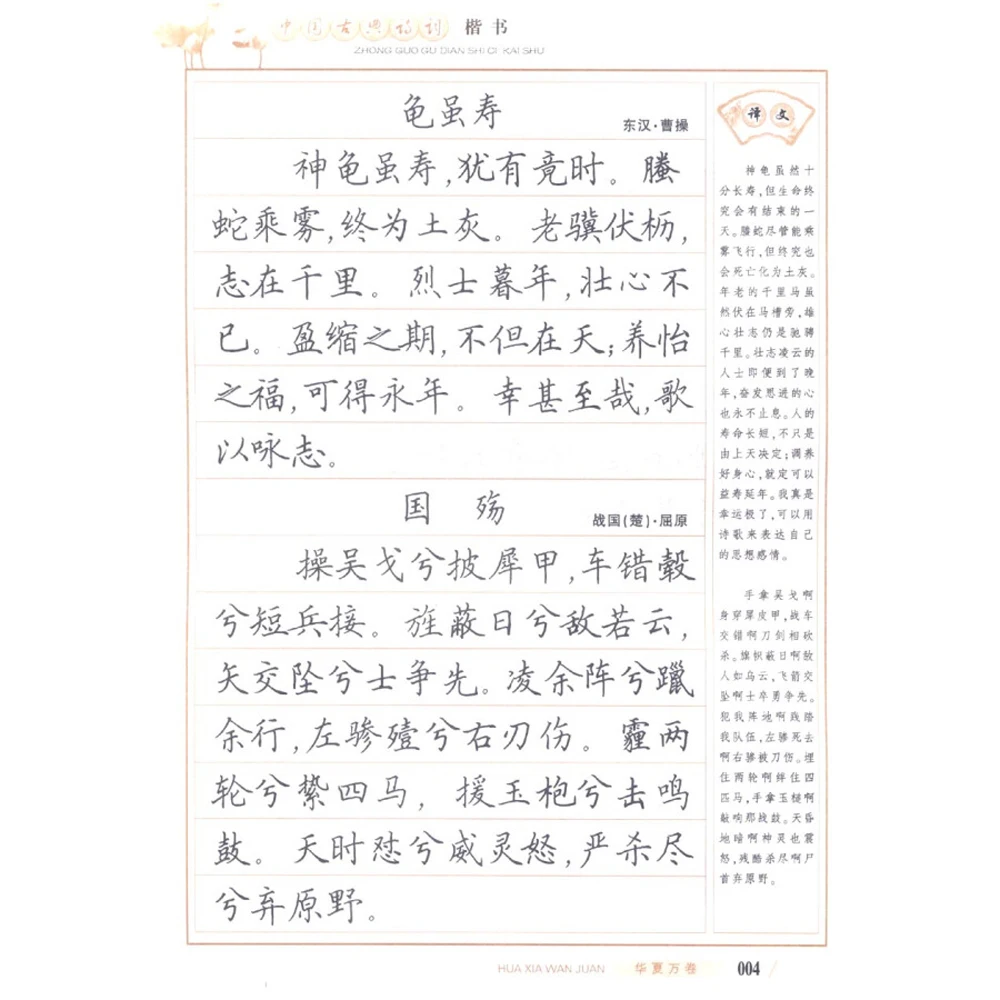 中国古典诗词 楷书
ZHONG GUO GU DIAN SHI CI KAI SHU
龟虽寿
东汉·曹操
神龟虽寿,犹有竟时。螣
蛇乘雾,终为土灰。老骥伏枥,
志在千里。烈士暮年,壮心不
已。盈缩之期,不但在天;养怡
之福,可得永年。幸甚至哉,歌
以咏志。
国殇
战国(楚)·屈原
操吴戈兮披犀甲,车错毂
兮短兵接。旌蔽日兮敌若云,
矢交坠兮士争先。凌余阵兮躐
余行,左骖殪兮右刃伤。霾两
轮兮絷四马,援玉枹兮击鸣
鼓。天时怼兮威灵怒,严杀尽
兮弃原野。
译文
神龟虽然十
分长寿,但生命终
究会有结束的一
天。螣蛇尽管能乘
雾飞行,但终究也
会死亡化为土灰。
年老的千里马虽
然伏在马槽旁,雄
心壮志仍是驰骋
千里。壮志凌云的
人士即便到了晚
年,奋发思进的心
也永不止息。人的
寿命长短,不只是
由上天决定;调养
好身心,就定可以
益寿延年。我真是
幸运极了,可以用
诗歌来表达自己
的思想感情。
手拿吴戈啊
身穿犀皮甲,战车
交错啊刀剑相砍
杀。旗帜蔽日啊敌
人如乌云,飞箭交
坠啊士卒勇争先。
犯我阵地啊践踏
我队伍,左骖死去
啊右骖被刀伤。埋
住两轮啊绊住四
匹马,手拿玉槌啊
敲响那战鼓。天昏
地暗啊神灵也震
怒,残酷杀尽啊尸
首弃原野。
HUA XIA WAN JUAN 华夏万卷 004